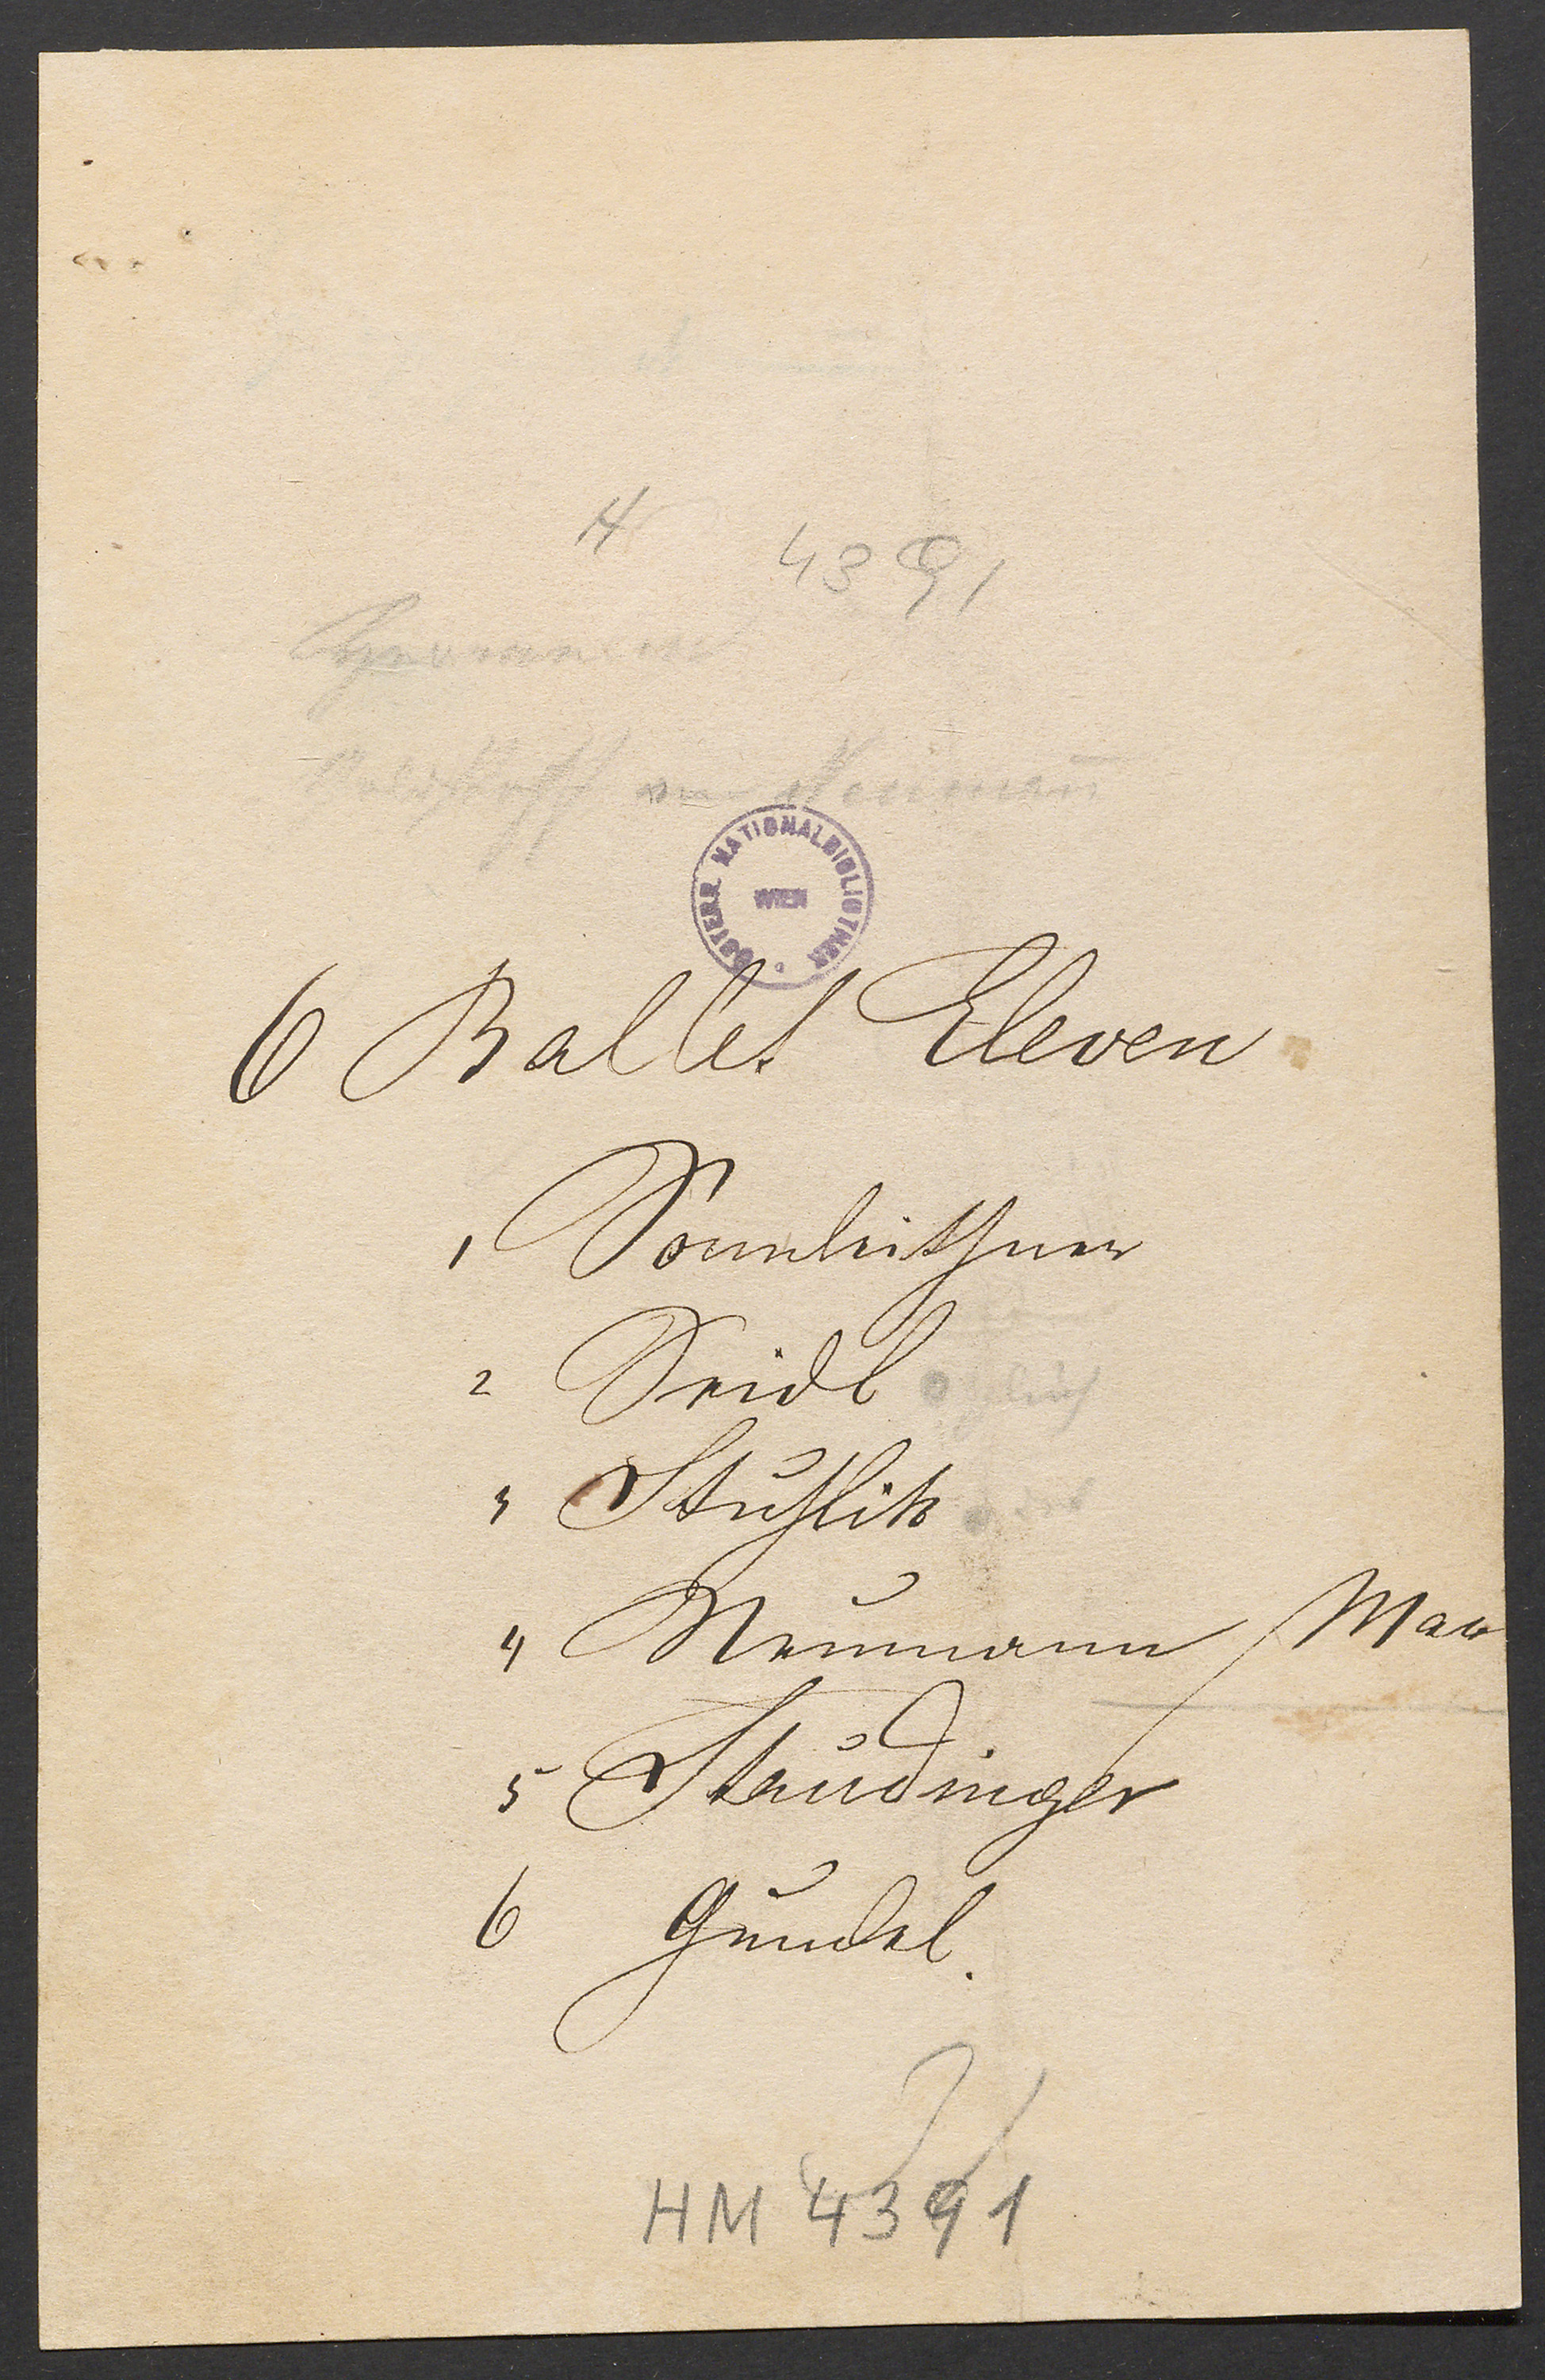 H 4391
Neumann
ÖSTERR. NATIONALBIBLIOTHEK WIEN
6 Ballet Eleven
1 Sonnleithner
2 Seidl
3 Stuhlik
4 Neumann Max
5 Staudinger
6 Gundel.
HM 4391